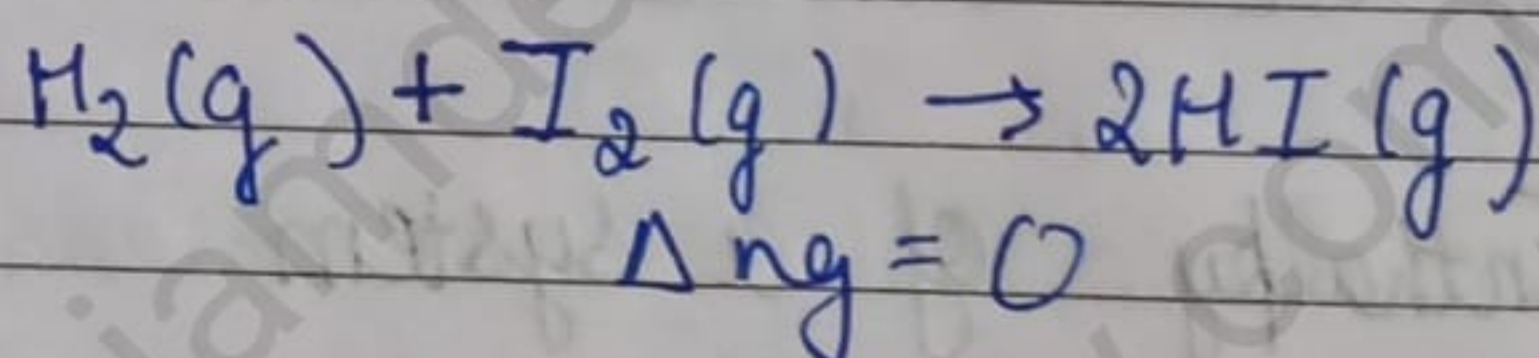 H₂(g) + I₂(g) → 2HI(g)
Δng = 0